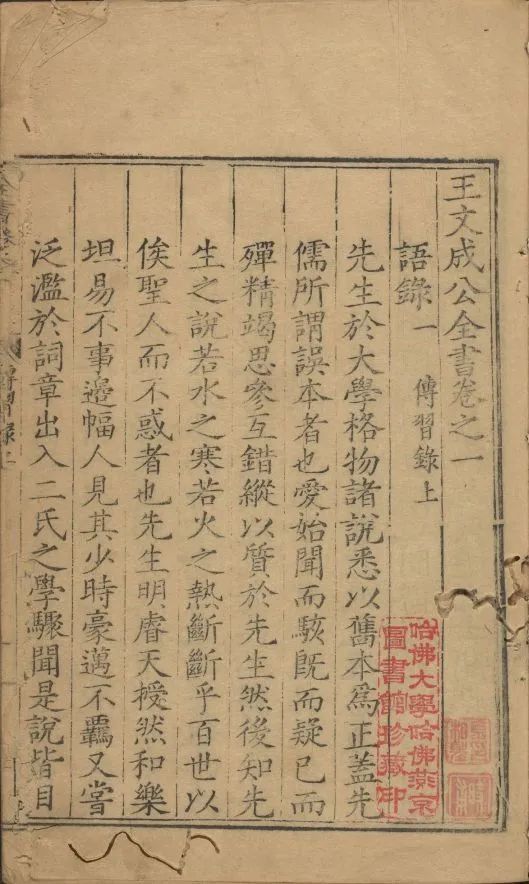 王文成公全書卷之一
語錄一 傳習錄上
先生於大學格物諸說悉以舊本爲正蓋先
儒所謂誤本者也愛始聞而駭既而疑已而
殫精竭思參互錯縱以質於先生然後知先
生之說若水之寒若火之熱斷斷乎百世以
俟聖人而不惑者也先生明睿天授然和樂
坦易不事邊幅人見其少時豪邁不羈又嘗
泛濫於詞章出入二氏之學驟聞是說皆目
哈佛大學哈佛燕京
圖書館珍藏印